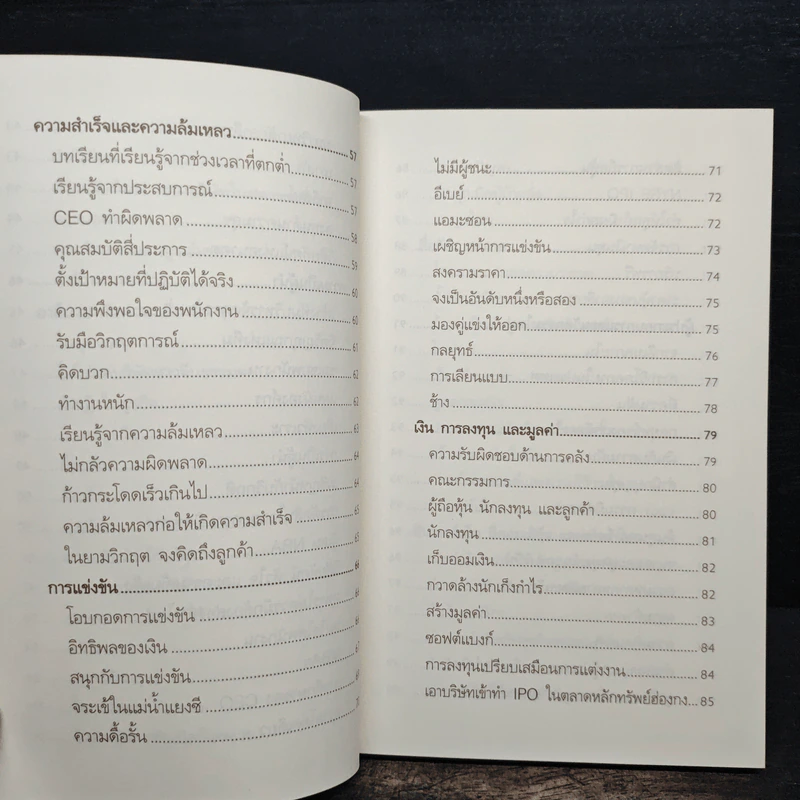 ความสำเร็จและความล้มเหลว 57
บทเรียนที่เรียนรู้จากช่วงเวลาที่ตกต่ำ 57
เรียนรู้จากประสบการณ์ 57
CEO ทำผิดพลาด 58
คุณสมบัติสี่ประการ 59
ตั้งเป้าหมายที่ปฏิบัติได้จริง 60
ความพึงพอใจของพนักงาน 60
รับมือวิกฤตการณ์ 61
คิดบวก 62
ทำงานหนัก 62
เรียนรู้จากความล้มเหลว 63
ไม่กลัวความผิดพลาด 64
ก้าวกระโดดเร็วเกินไป 64
ความล้มเหลวก่อให้เกิดความสำเร็จ 65
ในยามวิกฤต จงคิดถึงลูกค้า 65
การแข่งขัน 66
โอบกอดการแข่งขัน 66
อิทธิพลของเงิน
สนุกกับการแข่งขัน
จระเข้ในแม่น้ำแยงซี
ความดื้อรั้น
ไม่มีผู้ชนะ 71
อีเบย์ 72
แอมะซอน 72
เผชิญหน้าการแข่งขัน 73
สงครามราคา 74
จงเป็นอันดับหนึ่งหรือสอง 75
มองคู่แข่งให้ออก 75
กลยุทธ์ 76
การเลียนแบบ 77
ช้าง 78
เงิน การลงทุน และมูลค่า 79
ความรับผิดชอบด้านการคลัง 79
คณะกรรมการ 80
ผู้ถือหุ้น นักลงทุน และลูกค้า 80
นักลงทุน 81
เก็บออมเงิน 82
กวาดล้างนักเก็งกำไร 82
สร้างมูลค่า 83
ซอฟต์แบงก์ 84
การลงทุนเปรียบเสมือนการแต่งงาน 84
เอาบริษัทเข้าทำ IPO ในตลาดหลักทรัพย์ฮ่องกง 85